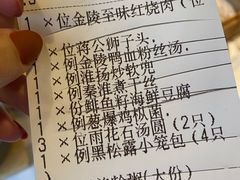 1 × 位金陵至味红烧肉(位
1 × 位蒋公狮子头.
1 × 例金陵鸭血粉丝汤.
1 × 例淮扬炒软兜
1 × 例秦淮煮干丝
1 × 份鲱鱼籽海鲜豆腐
1 × 例葱爆鸡枞菌.
3 × 位雨花石汤圆(2只)
1 × 例黑松露小笼包(4只
(大份)